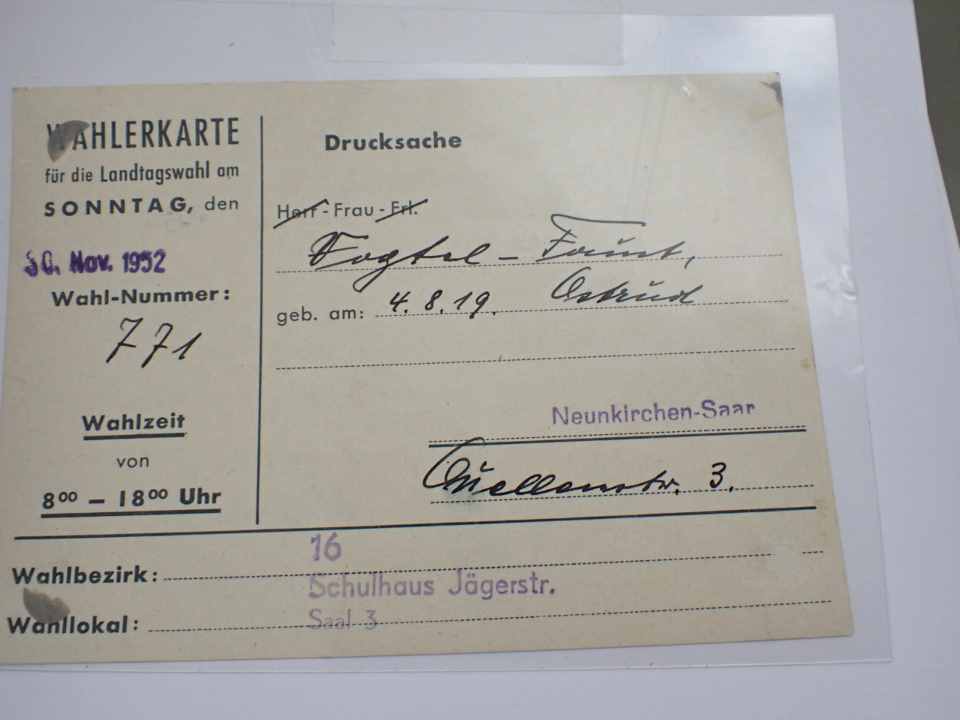 WAHLERKARTE
für die Landtagswahl am
SONNTAG, den
30. Nov. 1952
Wahl-Nummer:
771
Wahlzeit
von
8⁰⁰ – 18⁰⁰ Uhr
Drucksache
Herr - Frau - Frl.
Vogtel - Faust,
geb. am: 4. 8. 19.
Neunkirchen-Saar
Quellenstr. 3.
Wahlbezirk: 16
Schulhaus Jägerstr.
Wahllokal: Saal 3